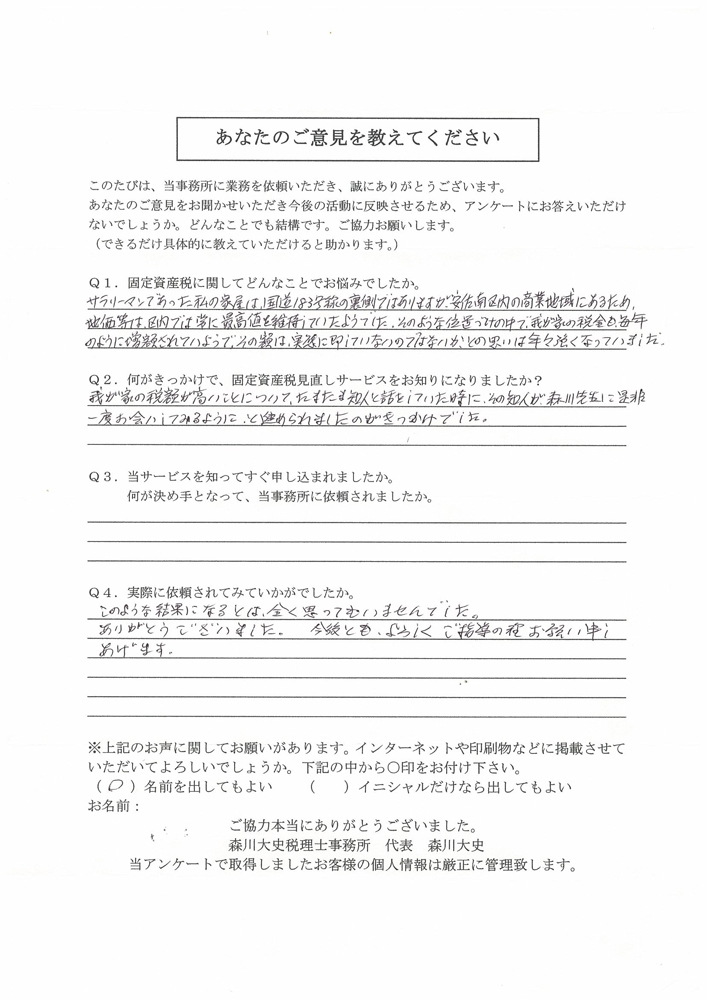 あなたのご意見を教えてください
このたびは、当事務所に業務を依頼いただき、誠にありがとうございます。
あなたのご意見をお聞かせいただき今後の活動に反映させるため、アンケートにお答えいただけ
ないでしょうか。どんなことでも結構です。ご協力お願いします。
（できるだけ具体的に教えていただけると助かります。）
Ｑ１．固定資産税に関してどんなことでお悩みでしたか。
サラリーマンであった私の家屋は、国道183号線の裏側ではありますが、安佐南区内の商業地域にあるため、
地価等は、区内では常に最高値を維持していたようでした。そのような位置づけの中で、我が家の税金も、毎年
のように増額されているようで、その額は、実態に即していないのではないか、との思いは年々強くなっていました。
Ｑ２．何がきっかけで、固定資産税見直しサービスをお知りになりましたか？
我が家の税額が高いことについて、たまたま知人と話をしていた時に、その知人が、森川先生に是非
一度お会いしてみるように、と進められましたのがきっかけでした。
Ｑ３．当サービスを知ってすぐ申し込まれましたか。
何が決め手となって、当事務所に依頼されましたか。
Ｑ４．実際に依頼されてみていかがでしたか。
このような結果になるとは、全く思ってもいませんでした。
ありがとうございました。 今後とも、よろしくご指導の程お願い申し
あげます。
※上記のお声に関してお願いがあります。インターネットや印刷物などに掲載させて
いただいてよろしいでしょうか。下記の中から〇印をお付け下さい。
（〇）名前を出してもよい （ ）イニシャルだけなら出してもよい
お名前：
ご協力本当にありがとうございました。
森川大史税理士事務所 代表 森川大史
当アンケートで取得しましたお客様の個人情報は厳正に管理致します。